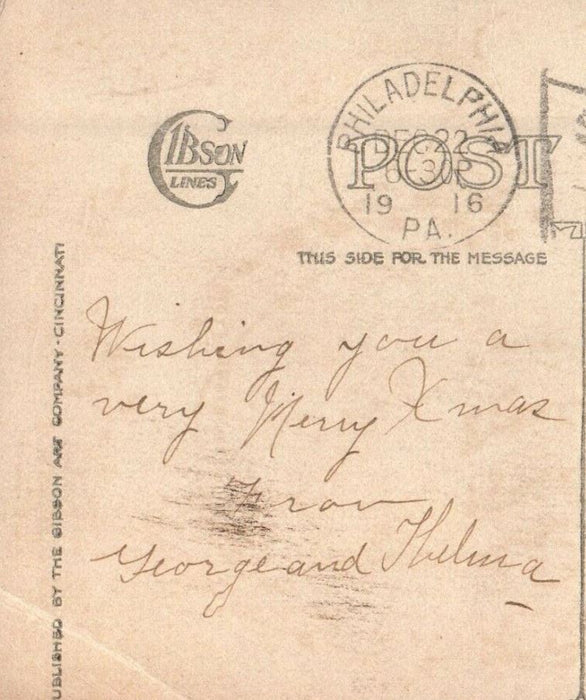 GIBSON
LINES
PHILADELPHIA
DEC 22
6-30P
19 16
PA.
POST
THIS SIDE FOR THE MESSAGE
UBLISHED BY THE GIBSON ART COMPANY · CINCINNATI
Wishing you a
very Merry Xmas
From
George and Thelma